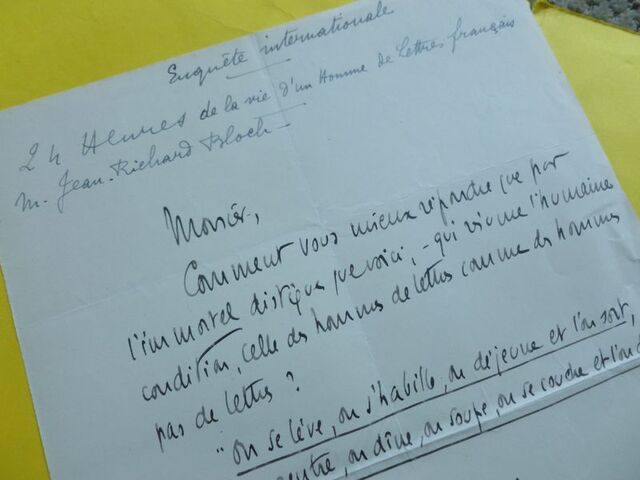 Enquête internationale
24 Heures de la vie d'un Homme de Lettres français
M. Jean-Richard Bloch -
Monsieur,
Comment vous mieux répondre que par
l'immortel distique que voici, - qui résume l'humaine
condition, celle des hommes de lettres comme des hommes
pas de lettres ?
"on se lève, on s'habille, on déjeune et l'on sort,
rentre, on dîne, on soupe, on se couche et l'on d